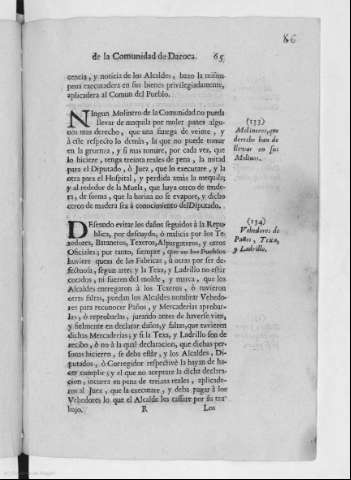 86
de la Comunidad de Daroca. 65
cencia, y noticia de los Alcaldes, baxo la misma
pena executadera en sus bienes privilegiadamente,
aplicadera al Comun del Pueblo.
Ningun Molinero de la Comunidad no pueda
llevar de mequila por moler panes algu-
nos mas derecho, que una fanega de veinte, y
à este respecto lo demàs, la que no puede tomar
en la gruenza, y si mas tomare, por cada vez, que
lo hiciere, tenga treinta reales de pena, la mitad
para el Diputado, ò Juez, que lo executare, y la
otra para el Hospital, y perdida assia la mequila;
y al rededor de la Muela, que haya cerco de made-
ra, de forma, que la harina no se evapore, y dicho
cerco de madera sea à conocimiento del Diputado.
(133)
Molineros, que
derecho han de
llevar en sus
Molinos.
Deseando evitar los daños seguidos à la Repu-
blica, por descuydo, ò malicia por los Te-
xedores, Bataneros, Texeros, Alpargateros, y otros
Oficiales; por tanto, siempre, que en los Pueblos
huviere queja de las Fabricas, ù obras por ser de-
fectuosas, segun arte; y la Texa, y Ladrillo no està
cocidos, ni fueren del molde, y marca, que los
Alcaldes entregaron à los Texeros, ò tuvieren
otras faltas, puedan los Alcaldes nombrar Vehedo-
res para reconocer Paños, y Mercaderias aprobar-
las, ò reprobarlas, jurando antes de haverse visto,
y fielmente en declarar daños, y faltas, que tuvieren
dichas Mercaderias; y si la Texa, y Ladrillo son de
recibo, ò no à la qual declaracion, que dichas per-
sonas hicieren, se debe estàr, y los Alcaldes, Di-
putados, ò Corregidor respectivè la hayan de ha-
cer cumplir; y el que no aceptare la dicha declara-
cion, incurra en pena de treinta reales, aplicade-
ros al Juez, que la executare, y deba pagar à los
Vehedores lo que el Alcalde les tassare por su tra-
bajo. R Los
(134)
Vehedores de
Paños, Texa,
y Ladrillo.